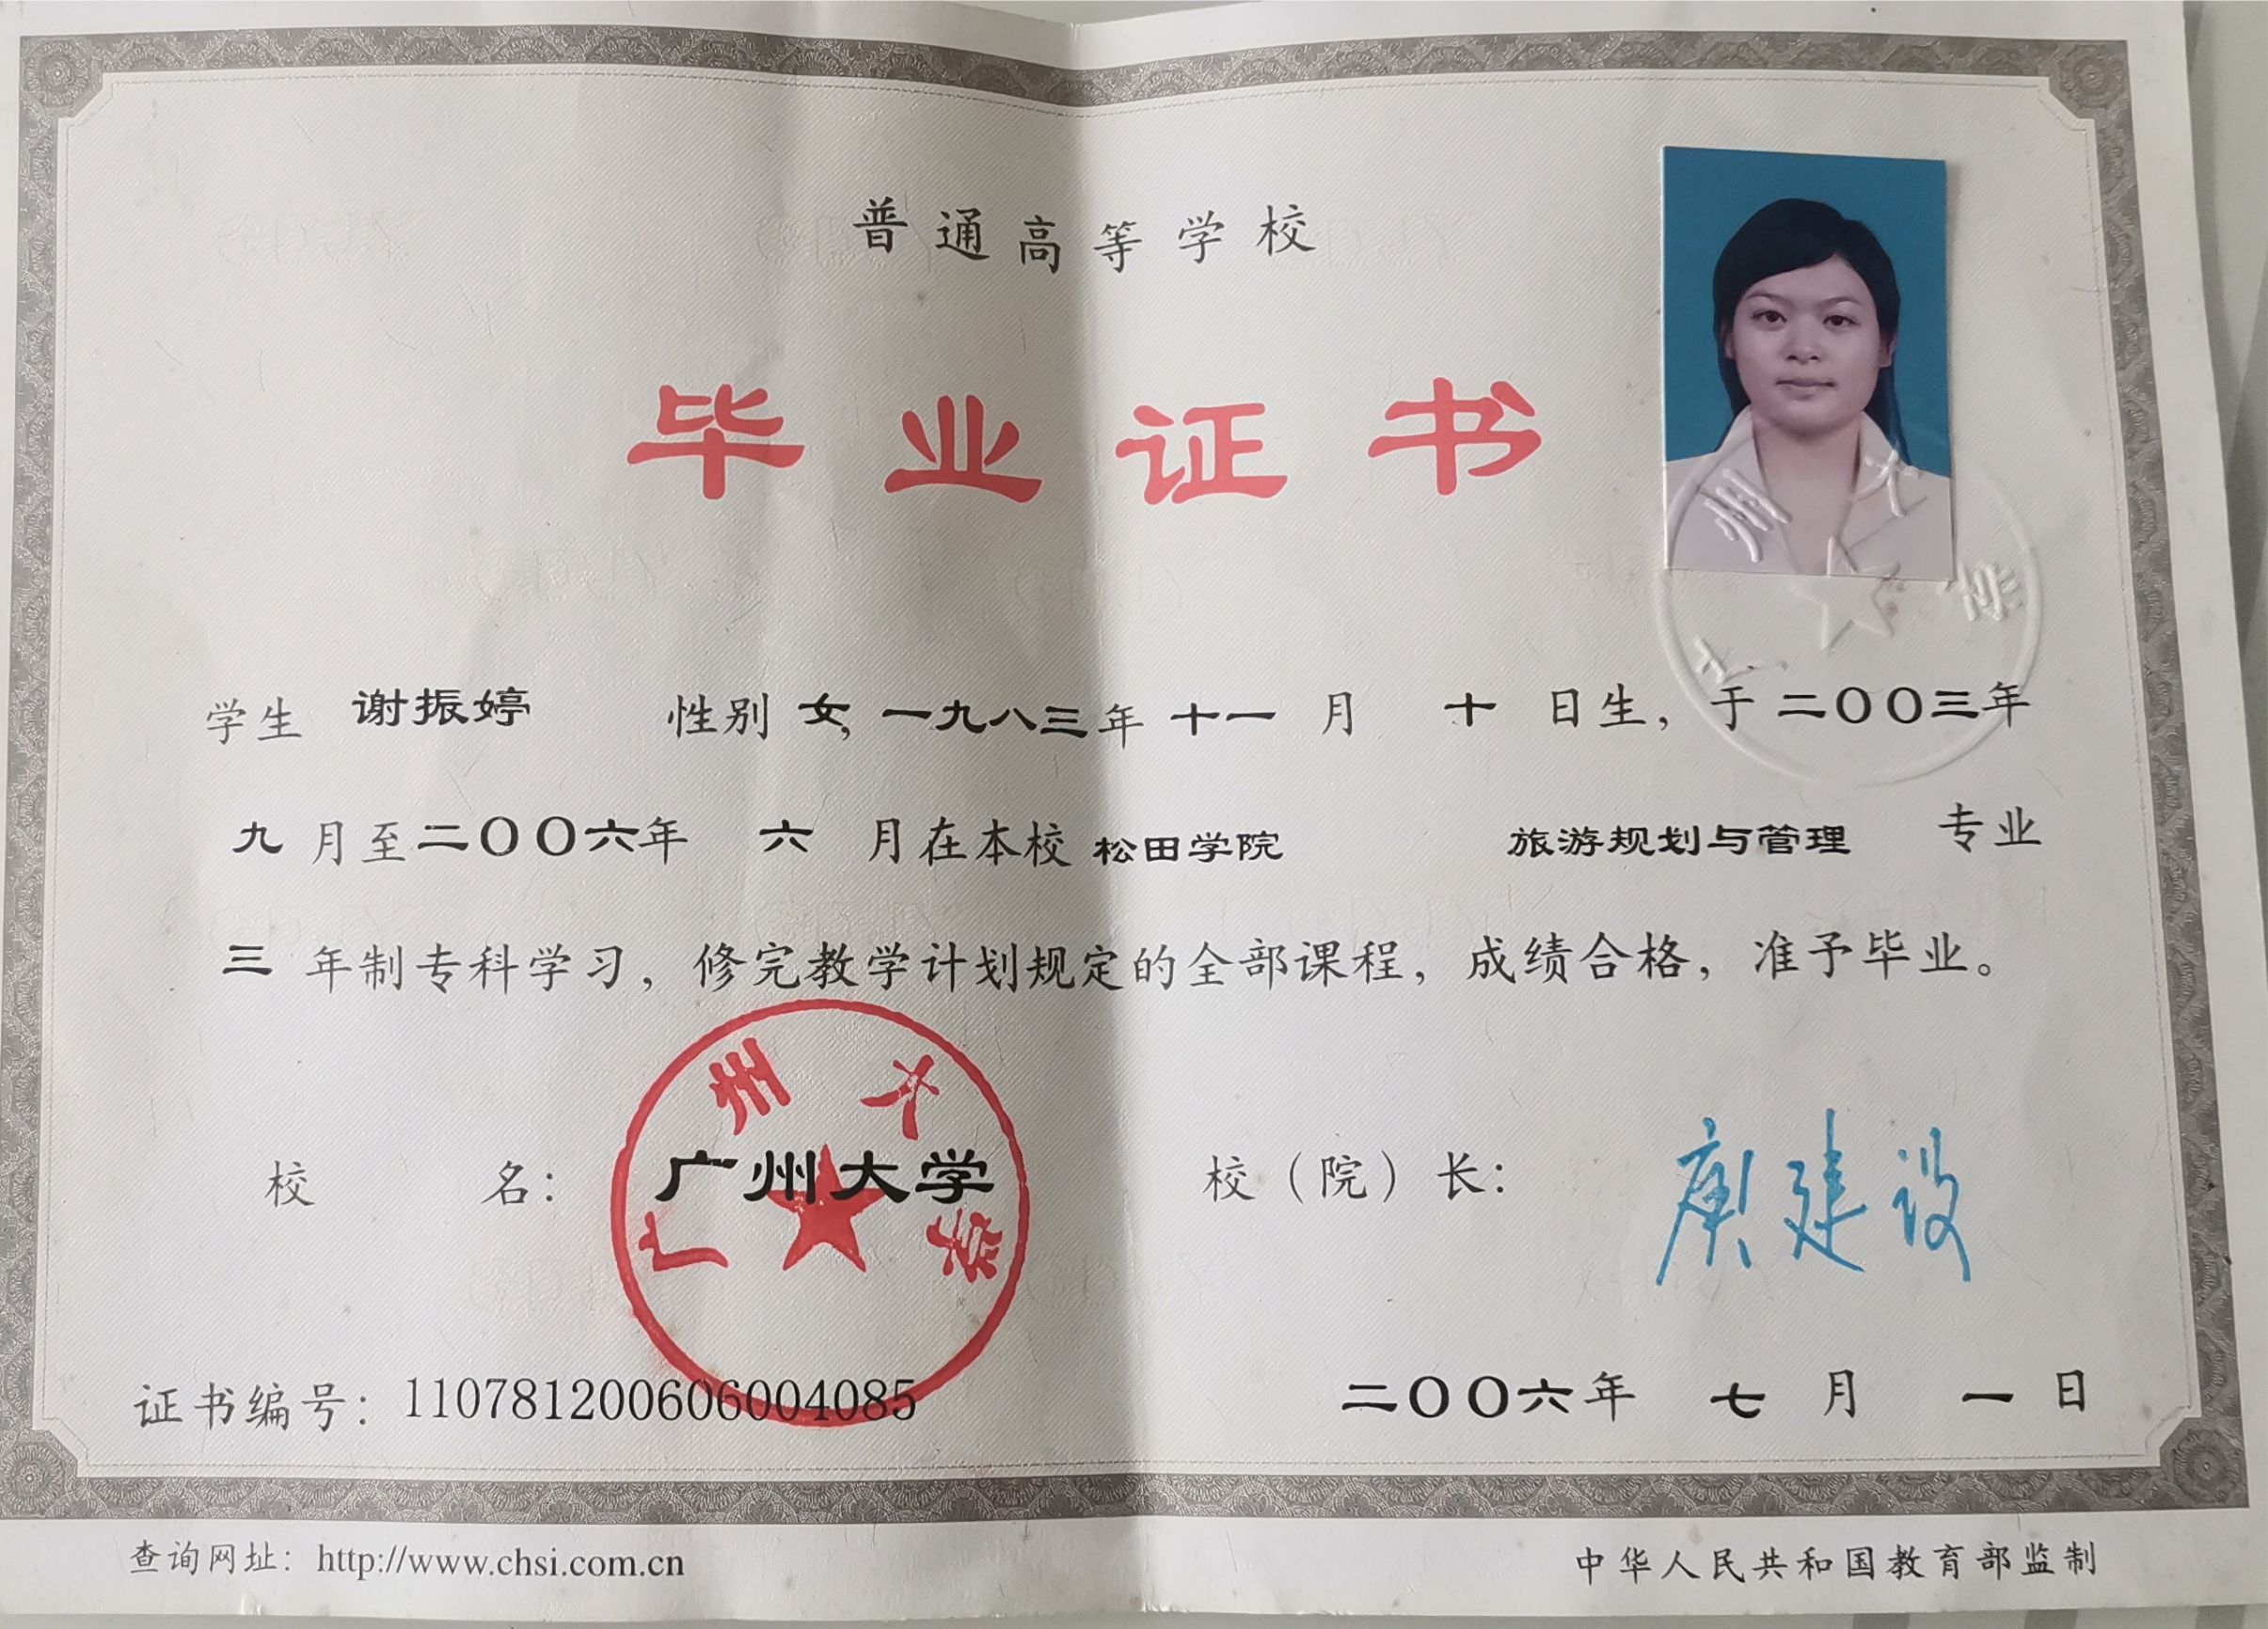 普通高等学校
毕业证书
学生 谢振婷 性别 女, 一九八三年 十一 月 十 日生, 于 二〇〇三年
九 月至二〇〇六年 六 月在本校 松田学院 旅游规划与管理 专业
三 年制专科学习, 修完教学计划规定的全部课程, 成绩合格, 准予毕业。
广州大学
校 名: 广州大学
校(院)长: 庾建设
证书编号: 110781200606004085
二〇〇六年 七 月 一 日
查询网址: http://www.chsi.com.cn
中华人民共和国教育部监制